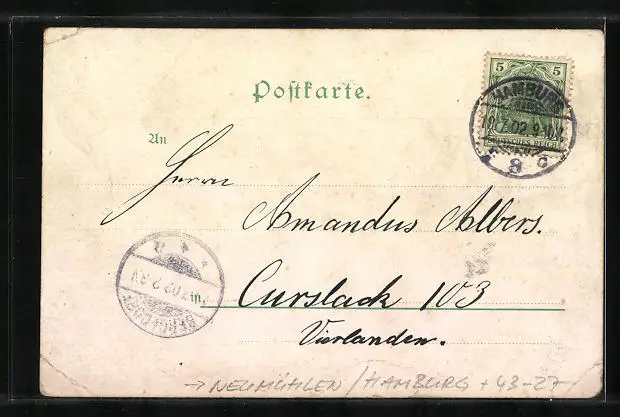 5 5
DEUTSCHES REICH
HAMBURG
.7.02.9-10
8 c
Postkarte.
An
Herrn
Amandus Albers.
in
Curslack 103
Vierlanden.
BERGEDORF
.7.02.
→ NEUMÜHLEN / HAMBURG + 43-27